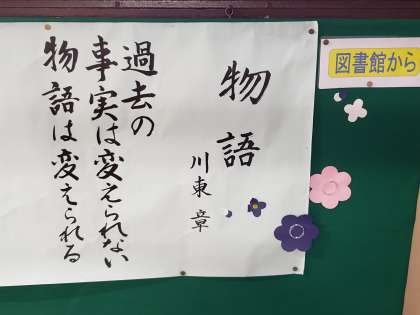 物語
川東 章
過去の
事実は変えられない
物語は変えられる
図書館から